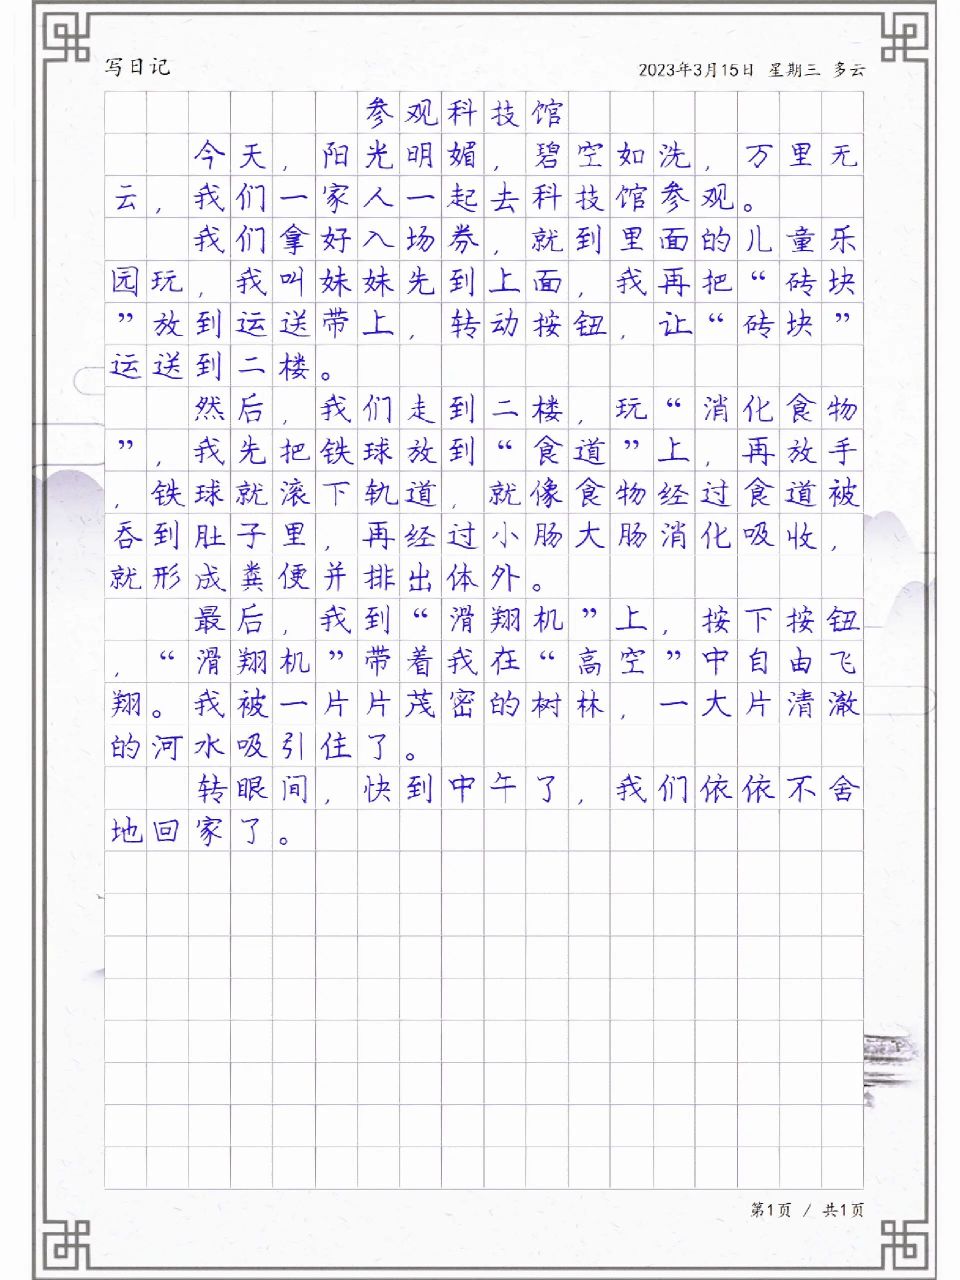 写日记
2023年3月15日 星期三 多云
参观科技馆
今天，阳光明媚，碧空如洗，万里无
云，我们一家人一起去科技馆参观。
我们拿好入场券，就到里面的儿童乐
园玩，我叫妹妹先到上面，我再把“砖块
”放到运送带上，转动按钮，让“砖块”
运送到二楼。
然后，我们走到二楼，玩“消化食物
”，我先把铁球放到“食道”上，再放手
，铁球就滚下轨道，就像食物经过食道被
吞到肚子里，再经过小肠大肠消化吸收，
就形成粪便并排出体外。
最后，我到“滑翔机”上，按下按钮
，“滑翔机”带着我在“高空”中自由飞
翔。我被一片片茂密的树林，一大片清澈
的河水吸引住了。
转眼间，快到中午了，我们依依不舍
地回家了。
第1页 / 共1页